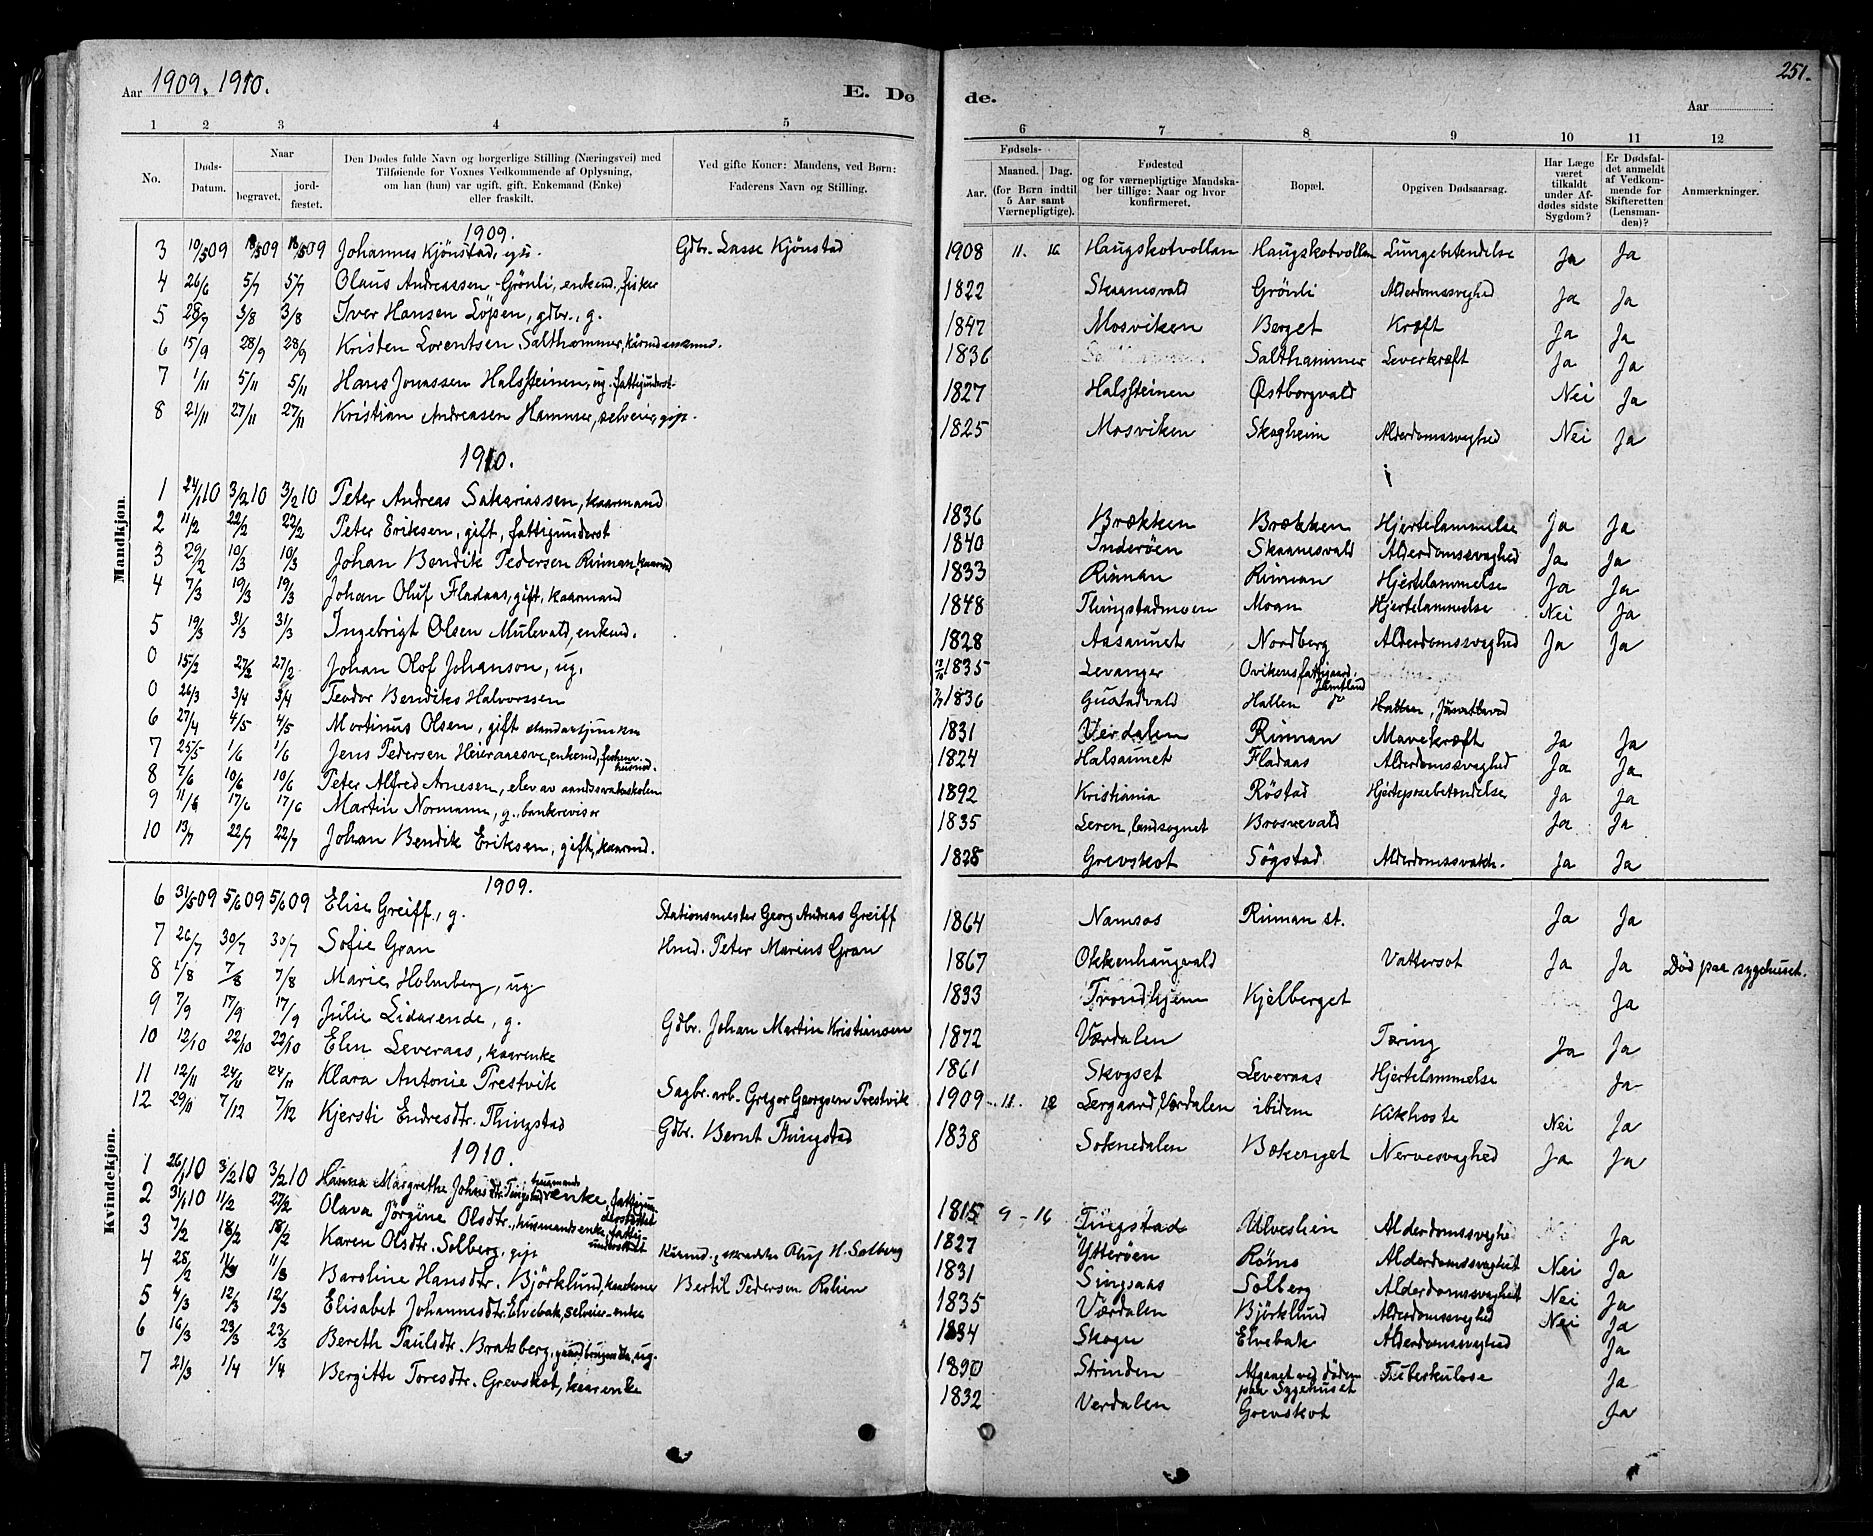 Aar 1909. 1910.
E. Dø
de.
Aar
251.
1 2 3 4 5
6 7 8 9 10 11 12
No.
Døds-Datum.
Naar
begravet.
jord-fæstet.
Den Dødes fulde Navn og borgerlige Stilling (Næringsvei) med
Tilføiende for Voxnes Vedkommende af Oplysning,
om han (hun) var ugift, gift, Enkemand (Enke)
eller fraskilt.
Ved gifte Koner: Mandens, ved Børn:
Faderens Navn og Stilling.
Fødsels-
Aar.
Maaned. Dag.
(for Børn indtil
5 Aar samt
Værnepligtige).
Fødested
og for værnepligtige Mandska-
ber tillige: Naar og hvor
konfirmeret.
Bopæl.
Opgiven Dødsaarsag.
Har Læge
været
tilkaldt
under Af-
dødes sidste
Sygdom?
Er Dødsfal-
det anmeldt
af Vedkom-
mende for
Skifteretten
(Lensman-
den)?
Anmærkninger.
Mandkjøn.
1909.
3 10/5 09 18/5 09 18/5 09 Johannes Kjönstad, Gdbr. Lasse Kjönstad 1908 11. 16 Haugskotvollan Haugskotvollan Lungebetendelse Ja Ja
4 26/6 5/7 5/7 Olaus Andreassen Grönli, enkemd., fisker 1822 Skaanesvald Grönli Alderdomssveghed Ja Ja
5 28/7 3/8 3/8 Iver Hansen Löpsen, gdbr., g. 1847 Mosviken Berget Kræft Ja Ja
6 15/9 28/9 28/9 Kristen Lorentsen Salthammer, 1836 Salthammer Leverkræft Ja Ja
7 1/11 5/11 5/11 Hans Jonassen Halssteinen, ug. fattigunderst. 1827 Halssteinen Østborgvald Nei Ja
8 21/11 27/11 27/11 Kristian Andreasen Hammer, selveier, 1825 Mosviken Skogheim Alderdomssveghed Nei Ja
1910.
1 24/1 10 3/2 10 3/2 10 Peter Andreas Sakariassen, kaarmand 1836 Brækken Brækken Hjertelammelse Ja Ja
2 11/2 22/2 22/2 Peter Eriksen, gift, fattigunderst 1840 Inderöen Skaanesvald Alderdomssvaghed Ja Ja
3 29/2 10/3 10/3 Johan Bendik Pedersen Rinnan, kaarmd 1833 Rinnan Rinnan Hjertelammelse Ja Ja
4 7/3 19/3 19/3 Johan Oluf Fladaas, gift, kaarmand 1848 Thingstadmoen Moan Hjertelammelse Nei Ja
5 19/3 31/3 31/3 Ingebrigt Olsen Mulevald, enkemd. 1828 Aasaunet Nordberg Alderdomssvaghed Ja Ja
0 15/2 27/2 27/2 Johan Olof Johanson, ug. 1835 Levanger Ovikens fattiggaard, Jemtland
0 26/3 3/4 3/4 Teodor Bendiks Halvorssen 1836 Gustadvald Hallen Hallen,
6 27/4 4/5 4/5 Mortinus Olsen, gift 1831 Verdalen Rinnan Mavekræft Ja Ja
7 25/5 1/6 1/6 Jens Pedersen enkemd, 1824 Halsaunet Fladaas Alderdomssvaghed Ja Ja
8 7/6 10/6 10/6 Peter Alfred Arnesen, elev av aandssvakeskolen 1892 Kristiania Röstad Hjerteposebetendelse Ja Ja
9 11/6 17/6 17/6 Martin Normann, g., bankrevisor 1835 Leren, landsognet Brosvevald Ja Ja
10 13/7 22/7 22/7 Johan Bendik Eriksen, gift, kaarmd. 1828 Grevskot Sögstad Alderdomssvakh. Ja Ja
Kvindekjøn.
1909.
6 31/5 09 5/6 09 5/6 09 Elise Greiff, g. Stationsmester Georg Andreas Greiff 1864 Namsos Rinnan st. Ja Ja
7 26/7 30/7 30/7 Sofie Gran Hmd. Peter Marius Gran 1867 Okkenhaugvald Vattersot Ja Ja Död paa sygehuset.
8 1/8 7/8 7/8 Marie Holmberg, ug 1833 Trondhjem Kjelberget Ja
9 7/9 17/9 17/9 Julie Lidarende, g. Gdbr. Johan Martin Kristiansen 1872 Værdalen Tæring Ja Ja
10 12/10 22/10 22/10 Elen Leveraas, kaarenke 1861 Skogset Leveraas Hjertelammelse Ja
11 12/11 24/11 24/11 Klara Antonie Prestvik Sagbr. arb. Gregor Georgsen Prestvik 1909 11. 12 Lergaard, Værdalen ibidem Kikhoste Nei Ja
12 29/11 7/12 7/12 Kjersti Endresdtr. Thingstad Gdbr. Bernt Thingstad 1838 Soknedalen Bækenget Nervesvaghed Ja Ja
1910.
1 26/1 10 3/2 10 3/2 10 Hanna Margrethe Johnsdtr. Tingstad husmandsenke, fattigunderstöttet 1815 9 - 16 Tingstad Ulveslien Alderdomssveghed Ja
2 31/1 10 11/2 27/2 Olava Jörgine Olsdtr., husmandsenke, fattigunderstöt 1827 Ytteröen Römo Alderdomssvaghet Nei Ja
3 7/2 18/2 18/2 Karen Olsdtr. Solberg, gift Oluf H. Solberg 1831 Singsaas Solberg Alderdomssvaghet Nei Ja
4 28/2 11/3 11/3 Baroline Hansdtr. Björklund, Bertil Pedersen 1835 Værdalen Björklund Alderdomssvaghed Nei Ja
5 4/3 12/3 12/3 Elisabet Johannesdtr. Elvebak, selveier-enke 1834 Skogn Elvebak Alderdomssvaghed Ja
6 16/3 23/3 23/3 Bereth Paulsdtr. Bratsberg, gaardbrugersdtr., ug. 1890 Strinden Afgaaet ved döden paa Sygehuset Tuberkulose Ja
7 21/3 1/4 1/4 Bergitte Toresdtr. Grevskot, kaarenke 1832 Verdalen Grevskot Ja